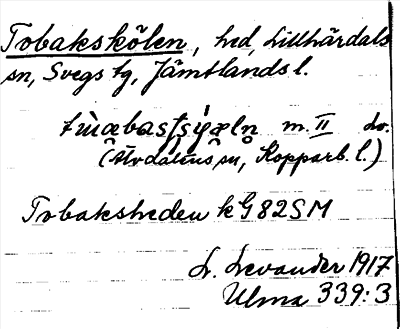 Tobakskölen, hed, Lillhärdals
sn, Svegs tg, Jämtlands l.
m. II do.
(Älvdalens sn, Kopparb. l.)
Tobaksheden k G 82 S M
L. Levander 1917
Ulma 339:3